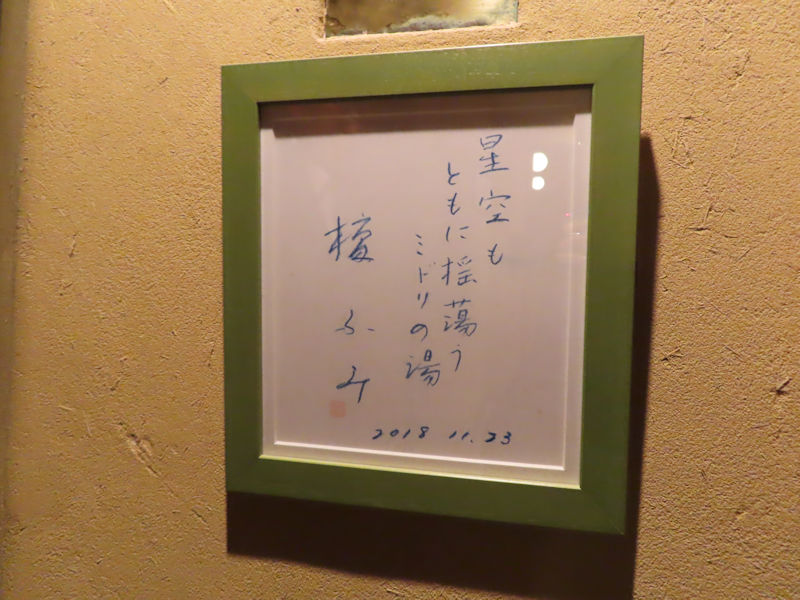 星空も
ともに揺蕩う
ミドリの湯
檀ふみ
2018 11.23